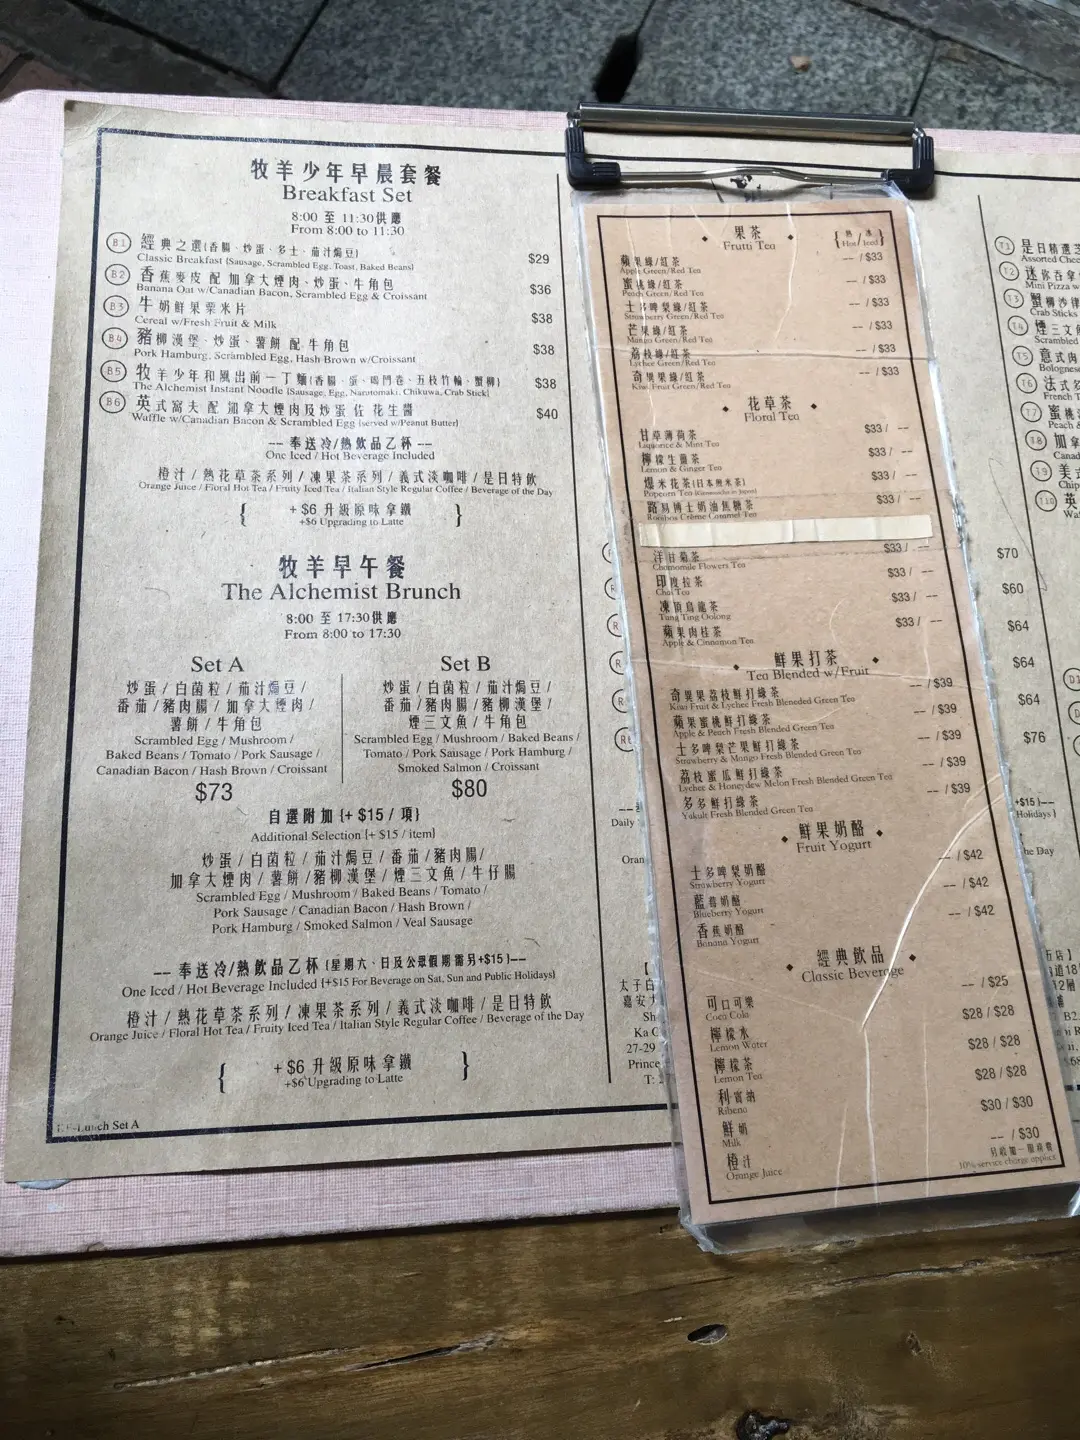 牧羊少年早晨套餐
Breakfast Set
8:00 至 11:30供應
From 8:00 to 11:30
B1 經典之選{香腸、炒蛋、多士、茄汁焗豆}
Classic Breakfast {Sausage, Scrambled Egg, Toast, Baked Beans} $29
B2 香蕉麥皮 配 加拿大煙肉、炒蛋、牛角包
Banana Oat w/Canadian Bacon, Scrambled Egg & Croissant $36
B3 牛奶鮮果粟米片
Cereal w/Fresh Fruit & Milk $38
B4 豬柳漢堡、炒蛋、薯餅 配 牛角包
Pork Hamburg, Scrambled Egg, Hash Brown w/Croissant $38
B5 牧羊少年和風出前一丁麵{香腸、蛋、鳴門卷、五枝竹輪、蟹柳}
The Alchemist Instant Noodle {Sausage, Egg, Narutomaki, Chikuwa, Crab Stick} $38
B6 英式窩夫 配 加拿大煙肉及炒蛋 佐 花生醬
Waffle w/Canadian Bacon & Scrambled Egg {served w/Peanut Butter} $40
-- 奉送冷/熱飲品乙杯 --
One Iced / Hot Beverage Included
橙汁 / 熱花草茶系列 / 凍果茶系列 / 義式淡咖啡 / 是日特飲
Orange Juice / Floral Hot Tea / Fruity Iced Tea / Italian Style Regular Coffee / Beverage of the Day
{ + $6 升級原味拿鐵 }
+$6 Upgrading to Latte
牧羊早午餐
The Alchemist Brunch
8:00 至 17:30供應
From 8:00 to 17:30
Set A
炒蛋 / 白菌粒 / 茄汁焗豆 /
番茄 / 豬肉腸 / 加拿大煙肉 /
薯餅 / 牛角包
Scrambled Egg / Mushroom /
Baked Beans / Tomato / Pork Sausage /
Canadian Bacon / Hash Brown / Croissant
$73
Set B
炒蛋 / 白菌粒 / 茄汁焗豆 /
番茄 / 豬肉腸 / 豬柳漢堡 /
煙三文魚 / 牛角包
Scrambled Egg / Mushroom / Baked Beans /
Tomato / Pork Sausage / Pork Hamburg /
Smoked Salmon / Croissant
$80
自選附加 {+ $15 / 項}
Additional Selection {+ $15 / item}
炒蛋 / 白菌粒 / 茄汁焗豆 / 番茄 / 豬肉腸 /
加拿大煙肉 / 薯餅 / 豬柳漢堡 / 煙三文魚 / 牛仔腸
Scrambled Egg / Mushroom / Baked Beans / Tomato /
Pork Sausage / Canadian Bacon / Hash Brown /
Pork Hamburg / Smoked Salmon / Veal Sausage
-- 奉送冷/熱飲品乙杯 {星期六、日及公眾假期需另+$15}--
One Iced / Hot Beverage Included {+$15 For Beverage on Sat, Sun and Public Holidays}
橙汁 / 熱花草茶系列 / 凍果茶系列 / 義式淡咖啡 / 是日特飲
Orange Juice / Floral Hot Tea / Fruity Iced Tea / Italian Style Regular Coffee / Beverage of the Day
{ + $6 升級原味拿鐵 }
+$6 Upgrading to Latte
Lunch Set A
果茶 {熱 / 凍}
Frutti Tea {Hot / Iced}
蘋果綠/紅茶 -- / $33
Apple Green/Red Tea
蜜桃綠/紅茶 -- / $33
Peach Green/Red Tea
士多啤梨綠/紅茶 -- / $33
Strawberry Green/Red Tea
芒果綠/紅茶 -- / $33
Mango Green/Red Tea
荔枝綠/紅茶 -- / $33
Lychee Green/Red Tea
奇異果綠/紅茶 -- / $33
Kiwi Fruit Green/Red Tea
花草茶
Floral Tea
甘草薄荷茶 $33 / --
Liquorice & Mint Tea
檸檬生薑茶 $33 / --
Lemon & Ginger Tea
爆米花茶{日本煎米茶} $33 / --
Popcorn Tea {Genmaicha in Japan}
路易博士奶油焦糖茶 $33 / --
Rooibos Crème Caramel Tea
洋甘菊茶 $33 / --
Chamomile Flowers Tea
印度拉茶 $33 / --
Chai Tea
凍頂烏龍茶 $33 / --
Tung Ting Oolong
蘋果肉桂茶 $33 / --
Apple & Cinnamon Tea
鮮果打茶
Tea Blended w/Fruit
奇異果荔枝鮮打綠茶 -- / $39
Kiwi Fruit & Lychee Fresh Bleneded Green Tea
蘋果蜜桃鮮打綠茶 -- / $39
Apple & Peach Fresh Blended Green Tea
士多啤梨芒果鮮打綠茶 -- / $39
Strawberry & Mango Fresh Blended Green Tea
荔枝蜜瓜鮮打綠茶 -- / $39
Lychee & Honeydew Melon Fresh Blended Green Tea
多多鮮打綠茶 -- / $39
Yakult Fresh Blended Green Tea
鮮果奶酪
Fruit Yogurt
士多啤梨奶酪 -- / $42
Strawberry Yogurt
藍莓奶酪 -- / $42
Blueberry Yogurt
香蕉奶酪 -- / $42
Banana Yogurt
經典飲品
Classic Beverage
可口可樂 -- / $25
Coca Cola
檸檬水 $28 / $28
Lemon Water
檸檬茶 $28 / $28
Lemon Tea
利賓納 $28 / $28
Ribena
鮮奶 $30 / $30
Milk
橙汁 -- / $30
Orange Juice
另設加一服務費
10% service charge applies
T1 是日精選芝
Assorted Chee
T2 迷你吞拿
Mini Pizza w
T3 蟹柳沙律
Crab Sticks
T4 煙三文魚
Scrambled
T5 意式肉
Bolognes
T6 法式多
French T
T7 蜜桃
Peach &
T8 加拿
Canad
T9 美式
Chip
T10 英
Wa
$70
$60
$64
$64
$64
$76
+$15 }--
Holidays }
he Day
Daily
Oran
太子白
嘉安大
Sh
Ka C
27-29
Prince
T: